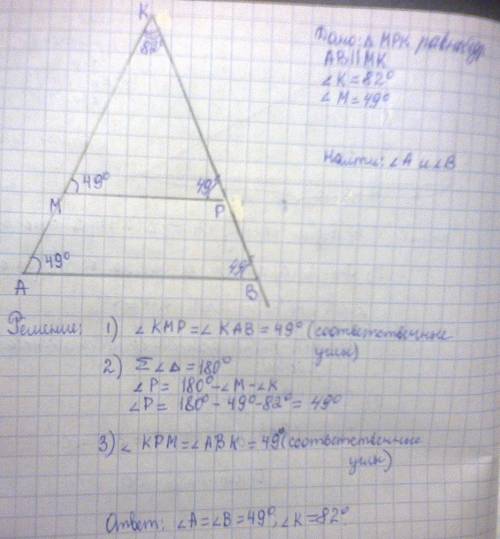 K
82°
Дано: Δ МРК равнобедр.
AB||MK
∠K=82°
∠M=49°
Найти: ∠A и ∠B
49°
49°
M
P
49°
49°
A
B
Решение: 1) ∠KMP=∠KAB=49° (соответственные
углы)
2) Σ∠Δ=180°
∠P= 180°-∠M-∠K
∠P= 180°-49°-82°= 49°
3) ∠KPM=∠ABK=49° (соответственные
углы)
Ответ: ∠A=∠B=49°, ∠K=82°.